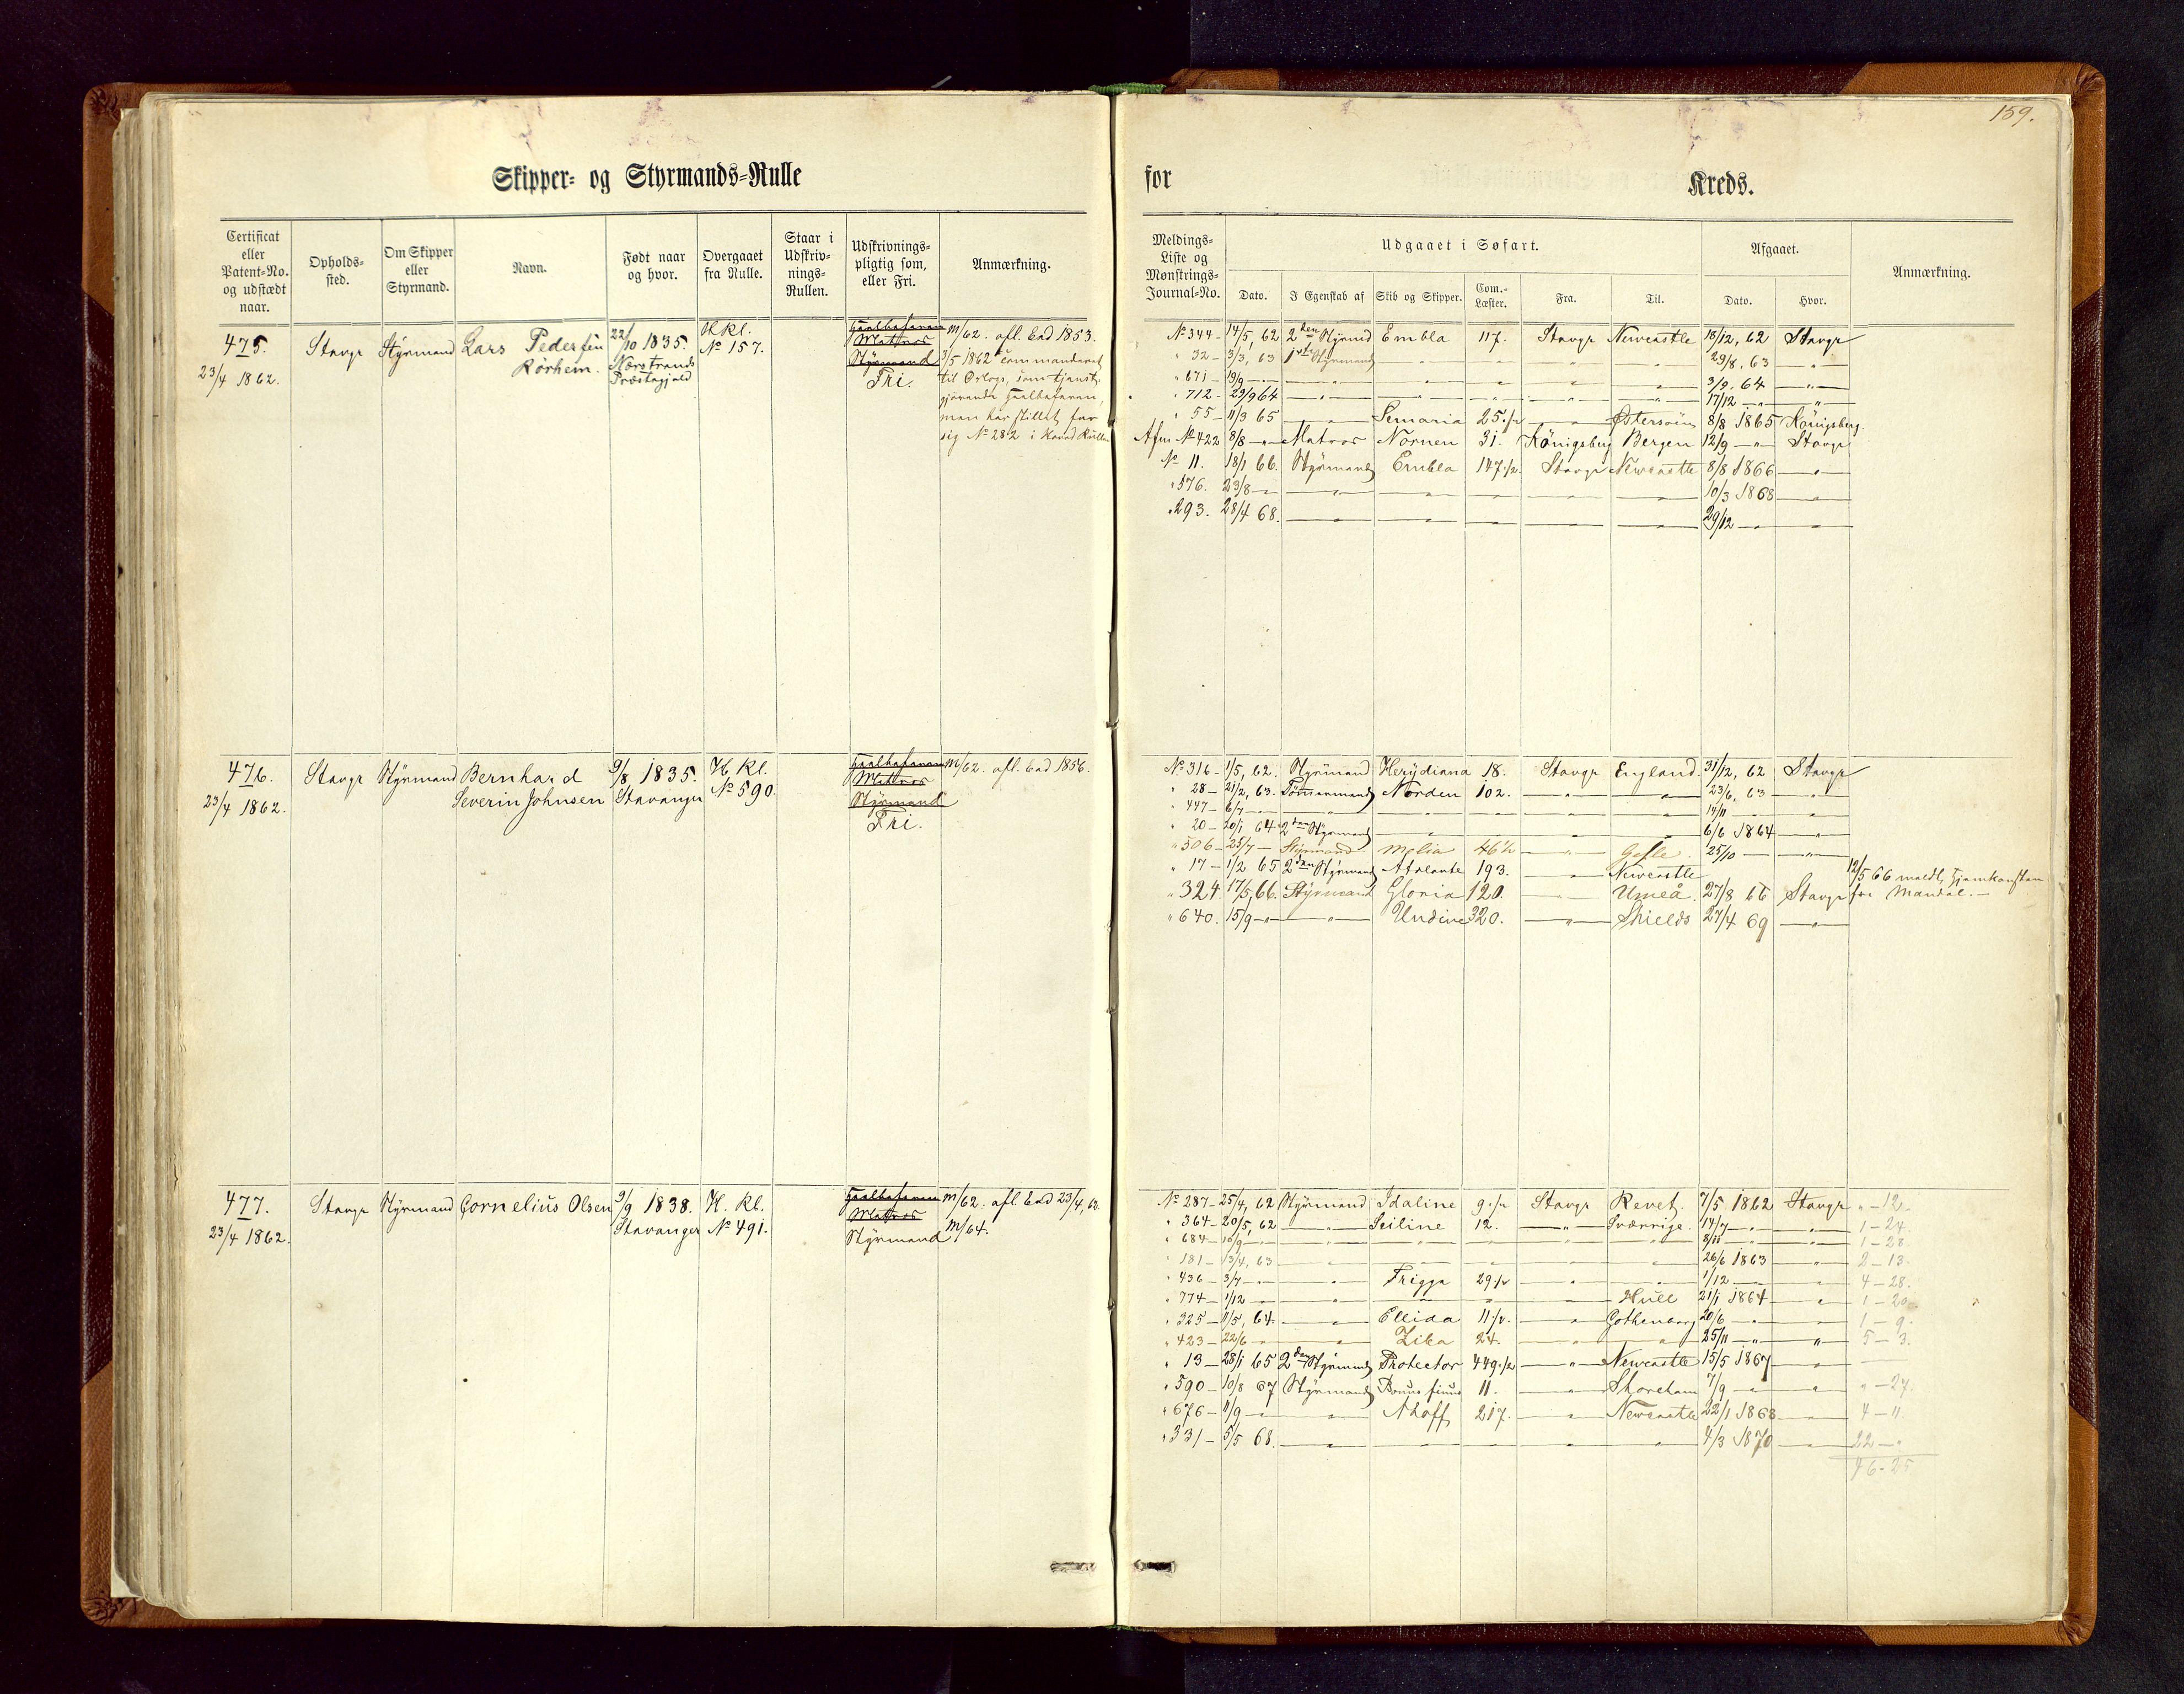 159.
Skipper= og Styrmands=Rulle for Kreds.
Certificat eller Patent=No. og udstædt naar.
Opholds=sted.
Om Skipper eller Styrmand.
Navn.
Født naar og hvor.
Overgaaet fra Rulle.
Staar i Udskriv=nings=Rullen.
Udskrivnings=pligtig som, eller Fri.
Anmærkning.
Meldings=Liste og Mønstrings=Journal=No.
Udgaaet i Søfart.
Dato. I Egenskab af Skib og Skipper. Com.=Læster. Fra. Til.
Afgaaet.
Dato. Hvor.
Anmærkning.
475. Stavgr Styrmand Lars Pedersen 22/10 1835. H Kl. m/62. afl. Ed 1853.
23/4 1862. Rørheim. Nærstrands Præstegjeld No 157. Matros Styrmand Fri.
3/5 1862 commanderet
til Orlogs, som tjenst=
gjørende
men har stillet for
sig No 282 i Hoved Rullen
No 344 - 14/5, 62 2den Styrmd Embla 117. Stavgr Newcastle 18/12, 62 Stavgr
" 32 - 3/3, 63 1ste Styrmand " " " " 29/8, 63 "
" 671 - 19/9 - " " " " " " 3/2. 64 "
" 712 - 29/9 64 " " " " " 17/12 - " "
" 55 - 11/3 65 " Semaria 25 1/2 " Østersøen 8/8 1865 Königsberg.
Afm No 422 8/8 - " Matros Nornen 31. Königsberg Bergen 12/9 - " Stavgr
No 11. 18/1 66. Styrmand Embla 147 1/2. Stavgr Newcastle 8/8 1866 "
" 576. 23/8 - " " " " " " 10/3 1868 "
" 293. 28/4 68. " " " " " 29/12 - " "
476. Stavgr Styrmand Bernhard 9/8 1835. H Kl. m/62. afl. Ed 1856.
23/4 1862. Severin Johnsen Stavanger No 590. Matros Styrmand Fri.
No 316 - 1/5, 62. Styrmand Herydiana 18. Stavgr England. 31/12, 62 Stavgr
" 28 - 21/2, 63. Tømmermand Norden 102. " " 23/6, 63 "
" 447 - 6/7 - " " " " " " 14/11 "
" 20 - 20/1 64 2den Styrmand " " " " 6/6 1864 "
" 506 - 25/7 - Styrmand Melia 46 1/2 " Gefle. 25/10 - "
" 17 - 1/2 65 2den Styrmand Atalante 193. " Newcastle
12/5 66 meldt, Hjemkomsten fra Mandal. -
" 324. 17/5, 66. Styrmand Gloria 120. " Umeå. 27/8 66 Stavgr
" 640. 15/9 - " " Undine 320. " Shields 27/4 69 "
477. Stavgr Styrmand Cornelius Olsen 9/9 1838. H. Kl. m/62. afl. Ed 23/4, 62.
23/4 1862. Stavanger No 491. Matros Styrmand m/64.
No 287 - 25/4, 62 Styrmand Idaline 9 1/2 Stavgr Revet. 7/5 1862 Stavgr " - 12.
" 364 - 20/5, 62 " Seiline 12. " Sverrige. 14/7 - " " 1 - 24.
" 684 - 10/9 - " " " " " " 8/11 " " 1 - 28.
" 181 - 13/4, 63 " " " " " 26/6 1863 " 2 - 13.
" 436 - 3/7 - " " Frigga 29 1/2 " " 1/12 " 4 - 28.
" 774 - 1/12 - " " " " " Hull 21/1 1864 " 1 - 20.
" 325 - 11/5, 64. " Ellida 11 1/2. " Gothenborg 20/6 - " " 1 - 9.
" 423 - 22/6 " " Ziba 24. " " 25/11 - " " 5 - 3.
" 13 - 28/1 65 2den Styrmand Protector 449 1/2 " Newcastle 15/5 1867 "
" 590 - 10/8 67 Styrmand 11. " Shoreham 7/9 - " " " - 27.
" 676 - 11/9 - " " Ahoff 217. " Newcastle 22/1 1868 " 4 - 11.
" 331 - 5/5 68. " " " " " 4/3 1870 " 22 - "
46 - 25